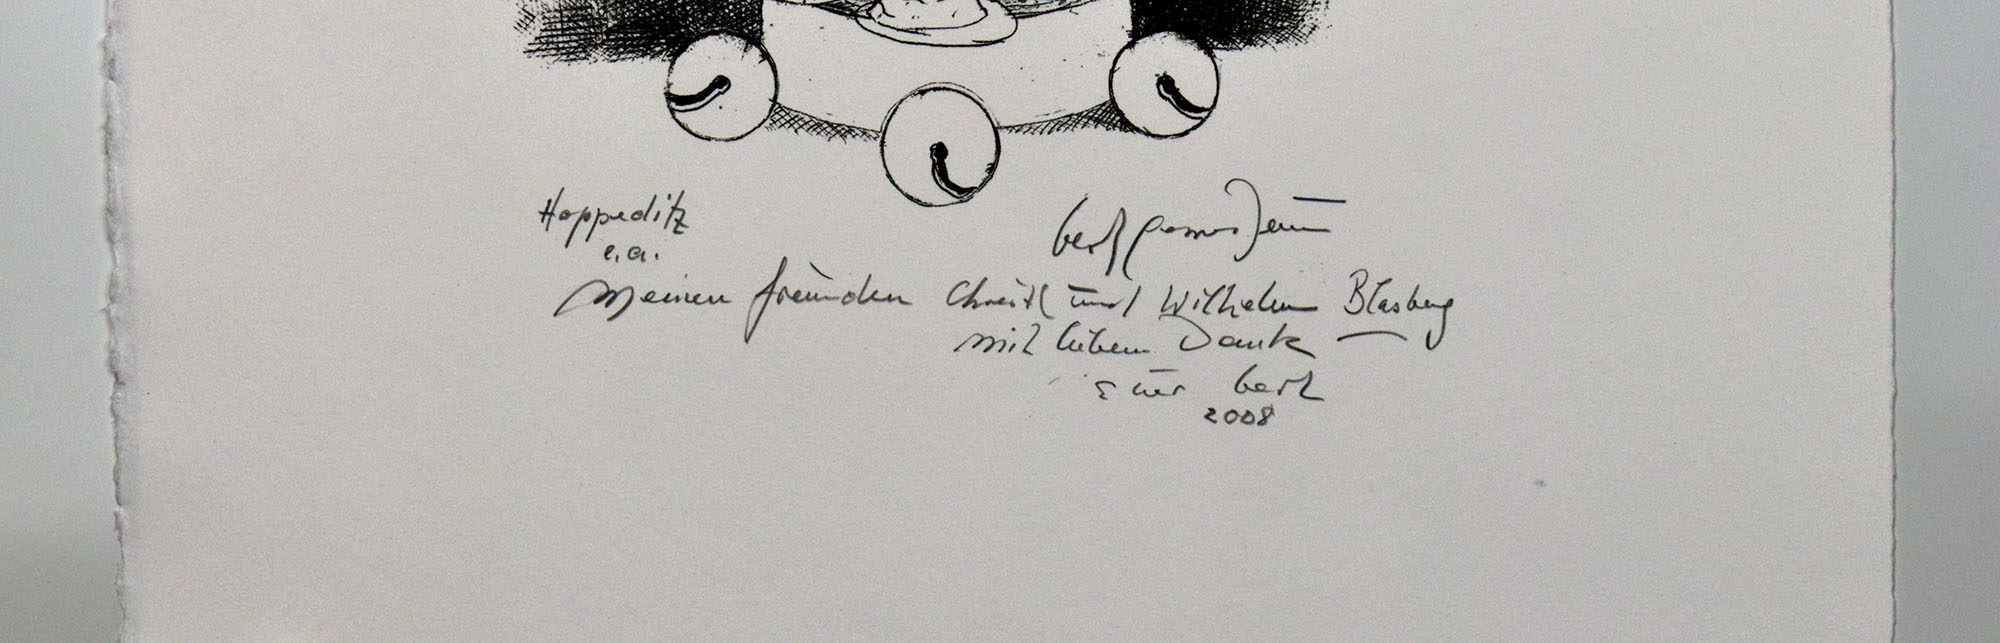 Hoppeditz
e.a.
bert gerresheim
Meinen freunden Christl und Wilhelm Blasberg
mit liebem Dank
Euer bert
2008